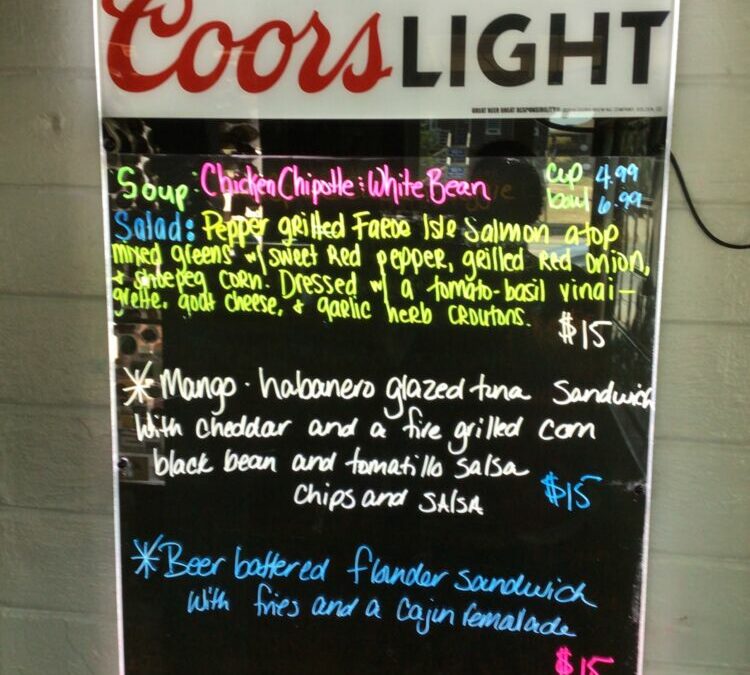 Coors LIGHT
GREAT BEER GREAT RESPONSIBILITY
Soup: Chicken Chipotle & White Bean cup 4.99
bowl 6.99
Salad: Pepper grilled Faroe Isle Salmon atop
mixed greens w/ sweet Red pepper, grilled Red onion,
& shoepeg corn. Dressed w/ a tomato-basil vinai-
grette, goat cheese, & garlic herb croutons.
$15
* Mango-habanero glazed tuna sandwich
with cheddar and a fire grilled corn
black bean and tomatillo salsa
chips and SALSA $15
* Beer battered flounder sandwich
with fries and a cajun remalade
$15